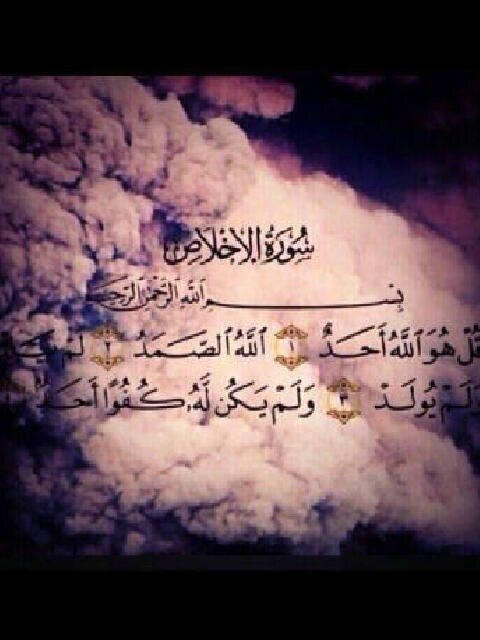 سُورَةُ الإِخْلَاصِ
بِسْمِ اللَّهِ الرَّحْمَٰنِ الرَّحِيمِ
قُلْ هُوَ اللَّهُ أَحَدٌ ١ اللَّهُ الصَّمَدُ ٢ لَمْ يَلِدْ
وَلَمْ يُولَدْ ٣ وَلَمْ يَكُن لَّهُ كُفُوًا أَحَدٌ